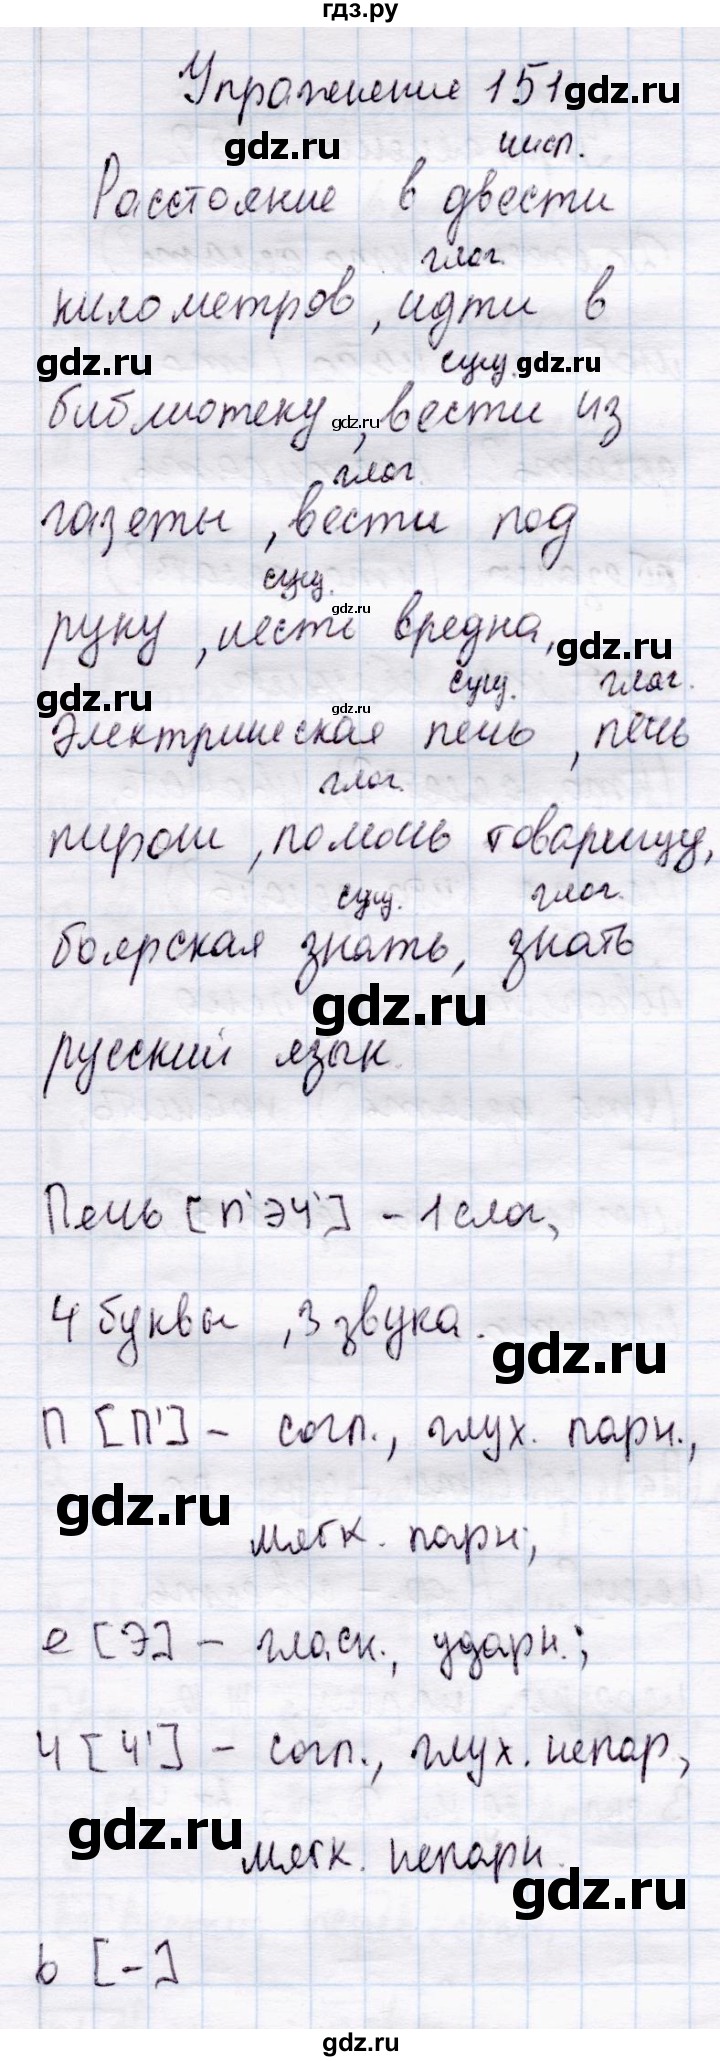 гдз.ру
Упражнение 151
gdz.ru
gdz.ru числ.
Расстояние в двести
глаг.
километров, идти в
gdz.ru сущ. gdz.ru
библиотеку, вести из
gdz.ru
глаг.
газеты, вести под
сущ. gdz.ru
руку, лесть вредна,
gdz.ru
gdz.ru gdz.ru сущ. глаг.
Электрическая печь, печь
глаг.
пироги, помочь товарищу,
сущ. глаг.
боярская знать, знать
gdz.ru
русский язык.
Печь [п'эч'] - 1 слог,
4 буквы, 3 звука.
gdz.ru
П [П'] - согл., глух. парн.,
gdz.ru
мягк. парн;
е [Э] - гласн., ударн.;
ч [ч'] - согл., глух. непар,
gdz.ru
мягк. непарн.
gdz.ru
ь [-]
gdz.ru